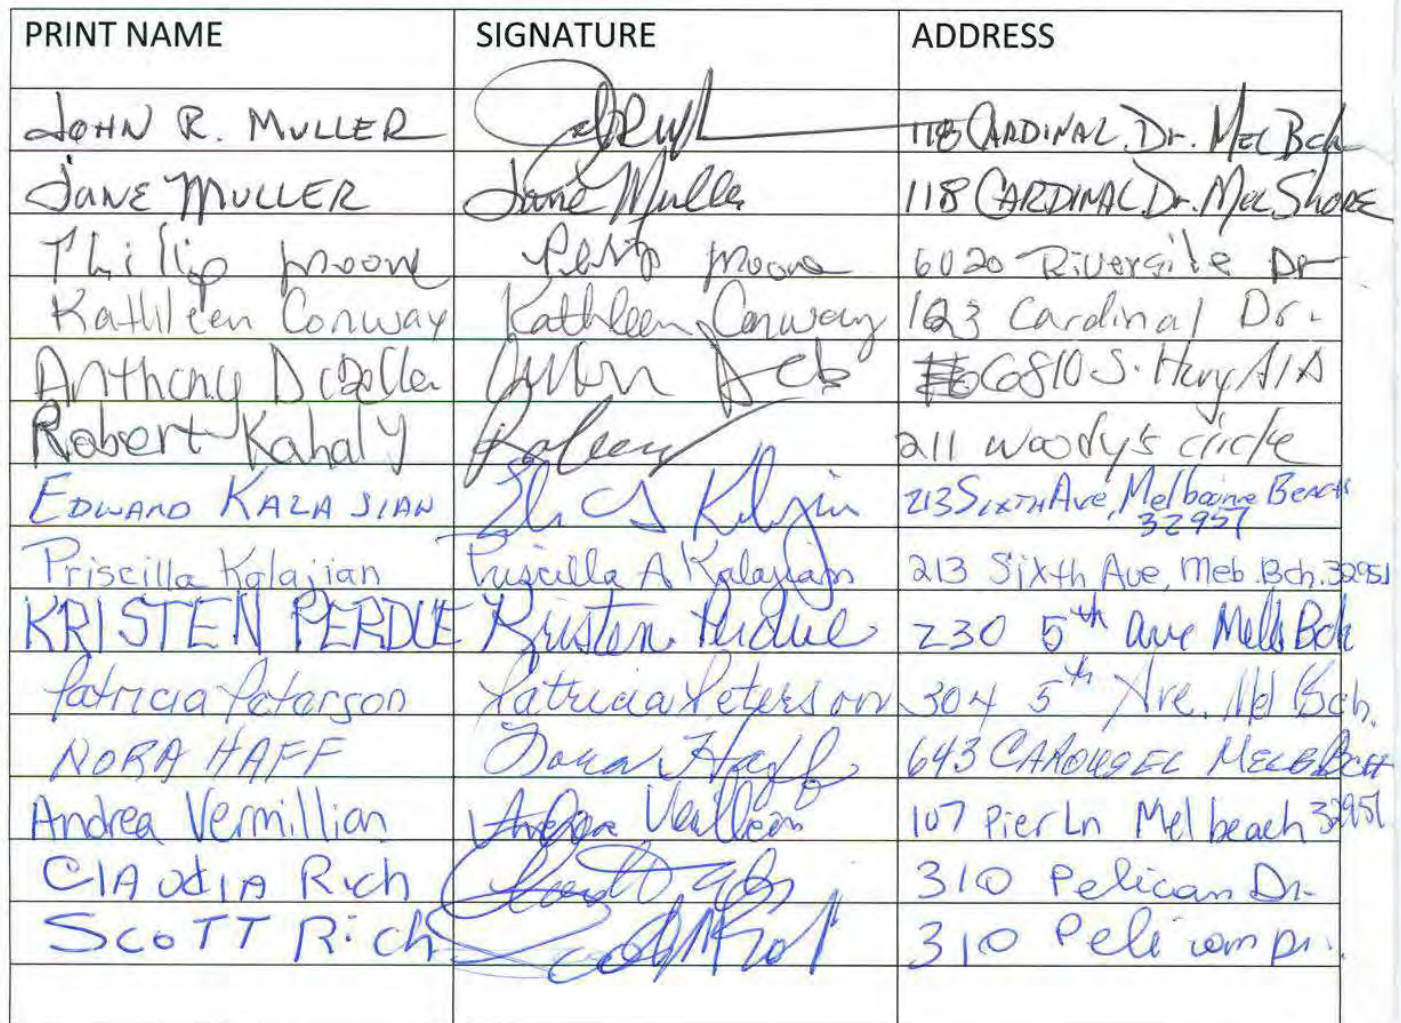 PRINT NAME SIGNATURE ADDRESS
JOHN R. MULLER 118 CARDINAL Dr. MEL Bch
JANE MULLER Jane Muller 118 CARDINAL Dr. MEL SHORE
Phillip moore moore 6020 Riverside Dr
Kathleen Conway Kathleen Conway 123 Cardinal Dr.
Anthony 6810 S. Hwy A1A
Robert Kahaly 211 woody's circle
EDWARD KALAJIAN 213 SIXTH Ave, Melbourne BEACH
32951
Priscilla Kalajian Priscilla A Kalajian 213 Sixth Ave, Meb. Bch. 32951
KRISTEN PERDUE Kristen Perdue 230 5th ave Melb Bch
Patricia Peterson Patricia Peterson 304 5th Ave. Mel Bch.
NORA HAFF Nora Haff 643 CAROUSEL MELB BCH
Andrea Vermillian 107 Pier Ln Mel beach 32951
ClAUdIA Rich 310 Pelican Dr.
SCOTT Rich 310 Pelican Dr.